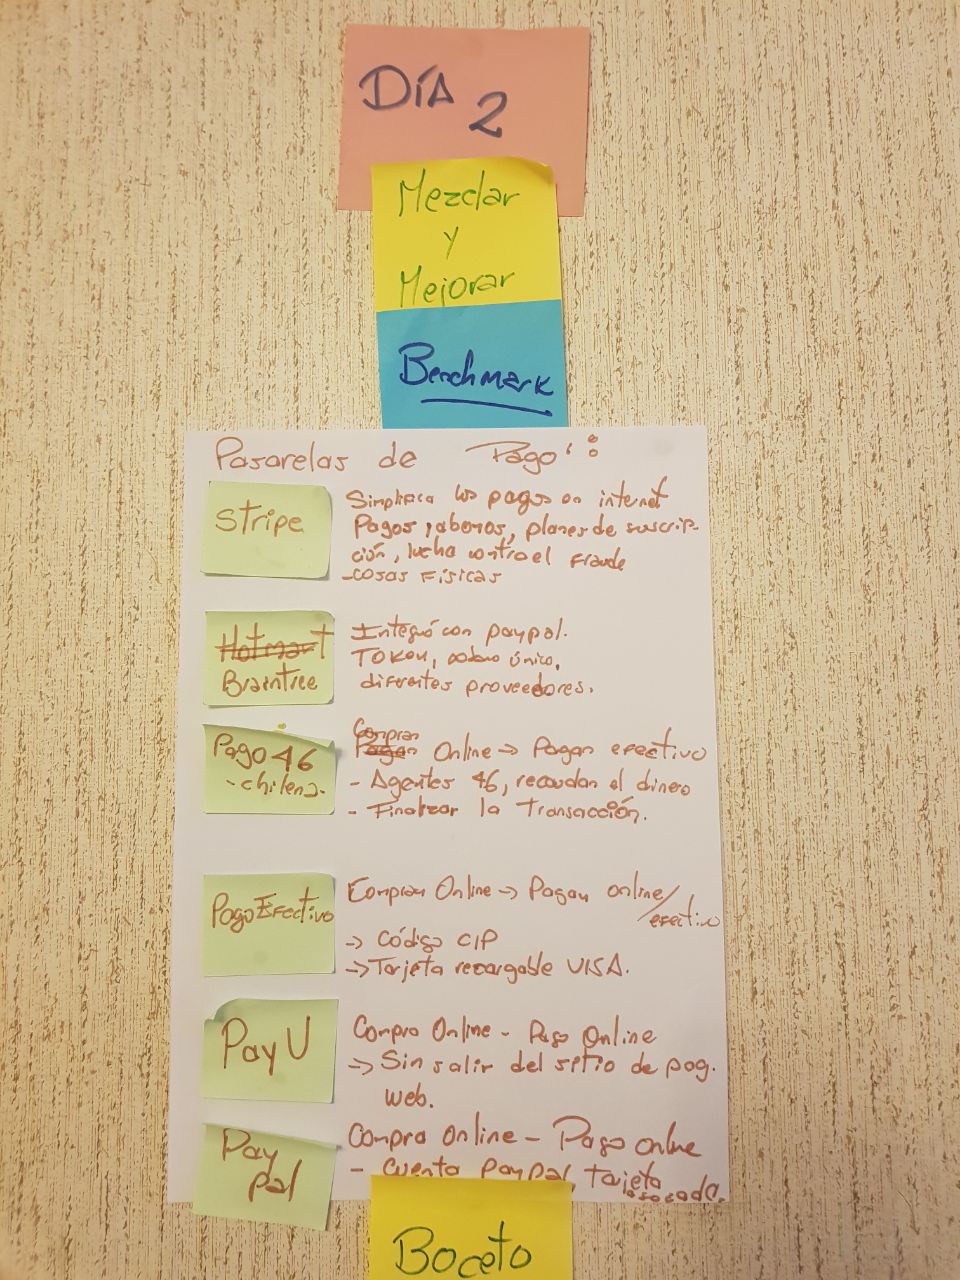 DÍA 2
Mezclar
y
Mejorar
Benchmark
Pasarelas de Pago:
Stripe
Simplifica los pagos en internet
Pagos, abonos, planes de suscrip-
ción, lucha contra el fraude
-cosas Físicas
Hotmart
Braintree
Integró con paypal.
Token, único,
diferentes proveedores.
Pago 46
-chilena-
Compran
Pagan Online → Pagan efectivo
- Agentes 46, recaudan el dinero
- Finalizar la Transacción.
PagoEfectivo
Compran Online → Pagan online/
efectivo
→ Código CIP
→ Tarjeta recargable VISA.
PayU
Compra Online - Pago Online
→ Sin salir del sitio de pag.
web.
Pay
Pal
Compra Online - Pago online
- cuenta PayPal, Tarjeta
asociada.
Boceto